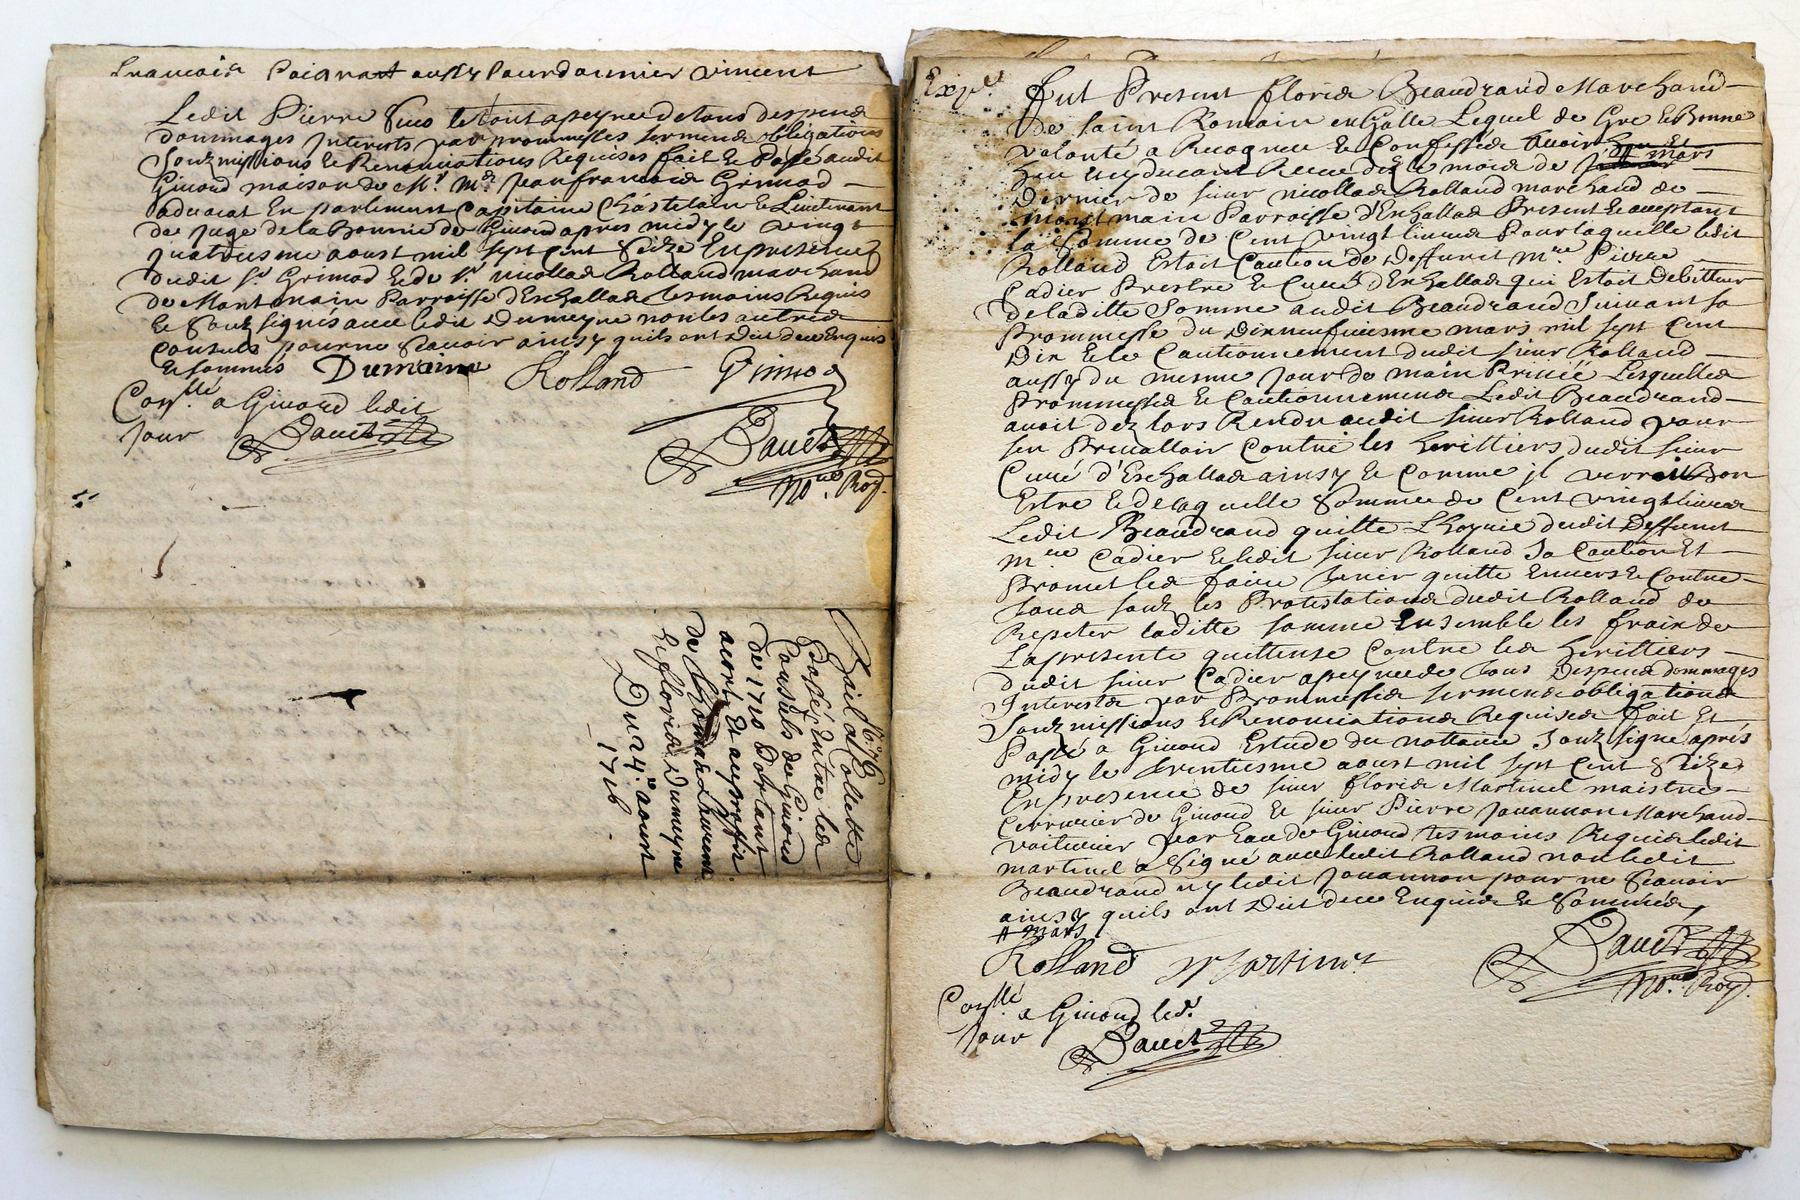 francois Poignant aussy pour dernier vincent
Ledit Pierre le tout a peyne de tous despens
dommages Interests par promesses sermens obligations
soubzmissions & Renonciations Requises fait & Passé audit
Givord maison de Mr Me Jean francois Grimod
advocat En parlement Capitaine Chastelain & Lieutenant
de juge de la Baronnie de Givord apres midy le vingt
quatriesme aoust mil sept cent seize En presence
dudit Sr Grimod & de Sr nicollas Rolland marchand
de Mont main Parroisse d'Eschallas tesmoins Requis
& soubz signés avec ledit Dumeyne non les autres
Consuls pour ne scavoir ainsy quils ont Dit de ce Enquis
& sommés Dumaine Rolland Grimod
Conllé a Givord ledit
jour Dauet Dauet
Nore Roy.
1676
Bail a Collette
Passé Entre les
Consuls de Givord
de 1710 Portant
acort Et au proffit
de Thomas Laurent
& floris Dumeyne
Du 24e aoust
1716.
Expé.
fut Present floris Beaudrand Marchand
de saint Romain en Galle Lequel de Gre & Bonne
volonté a Recogneu & Confessé avoir heu Et
Receu dez le mois de mars
dernier de sieur nicollas Rolland marchand de
mont main Parroisse d'Eschallas Present & acceptant
la somme de Cent vingt livres Pour laquelle ledit
Rolland Estoit Caution de Deffunt Mre Pierre
Cadier Prestre & Curé d'Eschallas qui Estoit Debitteur
de laditte somme audit Beaudrand suivant sa
Prommesse du Dixneufviesme mars mil sept Cent
Dix & le Cautionnement dudit sieur Rolland
aussy du mesme jour de main Privée Lesquelles
Prommesses & Cautionnemens Ledit Beaudrand
avoit dez lors Rendu audit sieur Rolland pour
sen Prevalloir Contre les herittiers dudit sieur
Curé d'Eschallas ainsy & Comme jl verroit Bon
Estre & de laquelle somme de Cent vingt livres
Ledit Beaudrand quitte L'hoyrie dudit Deffunt
Mre Cadier & ledit sieur Rolland sa Caution Et
Promet les faire tenir quitte Envers & Contre
tous soubz les Protestations dudit Rolland de
Repeter laditte somme Ensemble les frais de
La presente quittense Contre les herittiers
dudit sieur Cadier a peyne de tous Despens dommages
Interests par Prommesses sermens obligations
soubzmissions & Renonciations Requises fait Et
Passé a Givord Estude du nottaire soubzsigné apres
midy le trentiesme aoust mil sept Cent seize
En presence de sieur floris Martinel maistre
Cerrurier de Givord & sieur Pierre Jouannon Marchand
voiturier par Eau de Givord tesmoins Requis ledit
martinel a signé avec ledit Rolland non ledit
Beaudrand ny ledit Jouannon pour ne scavoir
ainsy quils ont Dit de ce Enquis & sommés
# mars
Rolland Martinel Dauet
Nore Roy.
Conllé
a Givord led.
jour Dauet